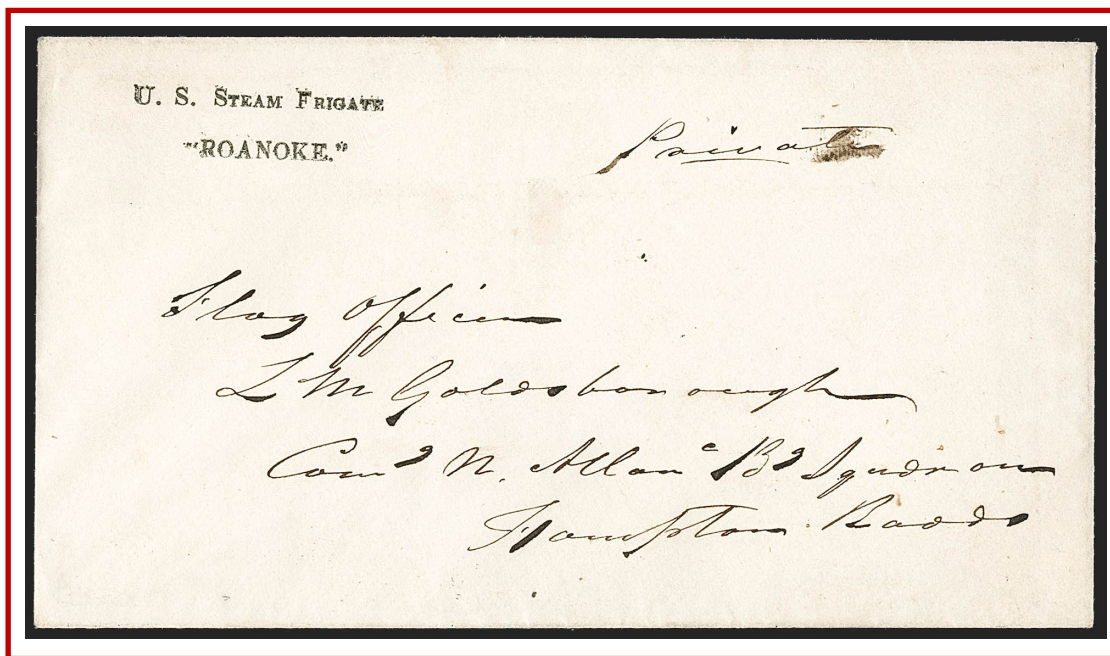 U. S. STEAM FRIGATE
"ROANOKE."
Private
Flag Officer
L M Goldsborough
Comd N. Atlanc Bd Squdron
Hampton Roads